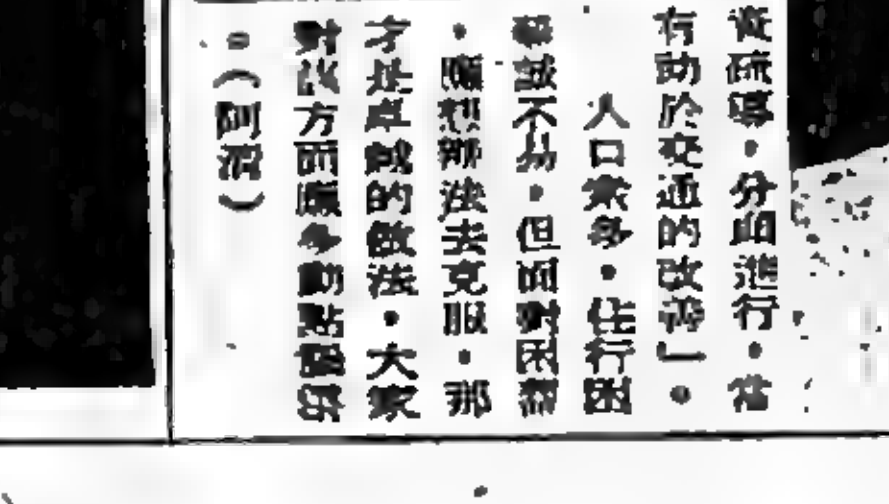 疏導，分進行，當
有助於交通的改善」。
人口衆多，住行困
難誠不易，但面對困難
，應想辦法去克服，那
才是卓越的做法，大家
對該方面應多動點腦筋
。（阿）